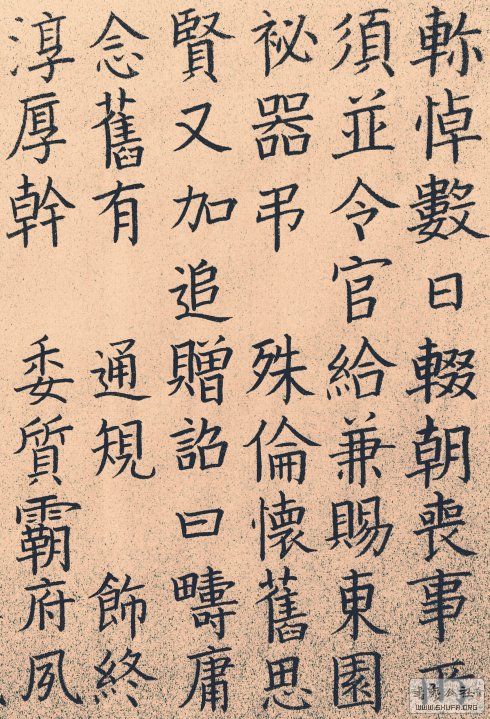 軫悼數日輟朝喪事
須並令官給兼賜東園
祕器弔 殊倫懷舊思
賢又加追贈詔曰疇庸
念舊有 通規 飾終
淳厚幹 委質霸府夙
WWW.SHUFA.ORG